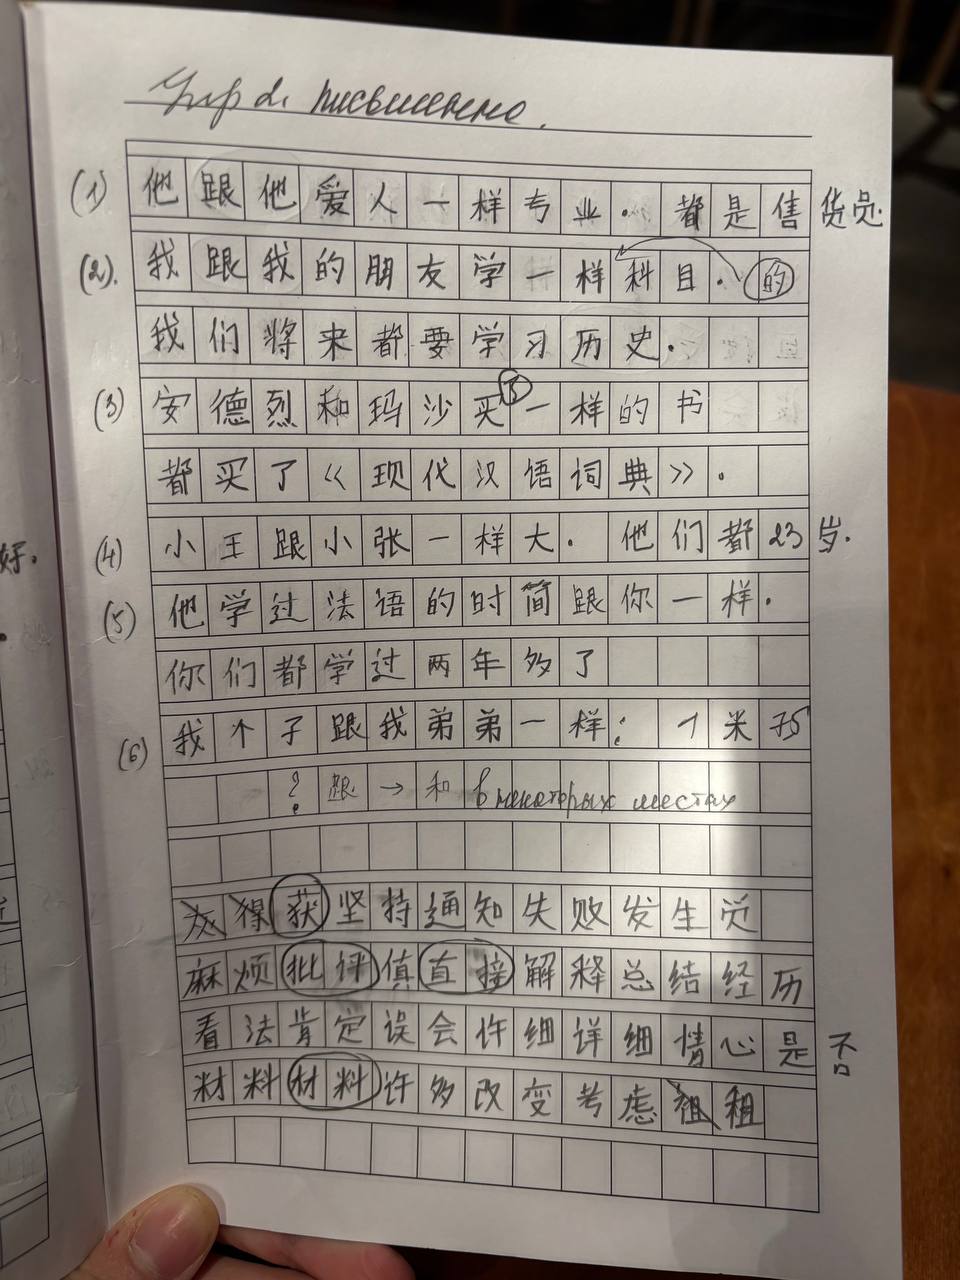 Упр di письменно.
(1) 他跟他爱人一样专业. 都是售货员.
(2). 我跟我的朋友学一样科目. 的
我们将来都要学习历史.
(3) 安德烈和玛沙买了一样的书
都买了《现代汉语词典》.
(4) 小王跟小张一样大. 他们都23岁.
(5) 他学过法语的时简跟你一样.
你们都学过两年多了
(6) 我个子跟我弟弟一样: 1米75
? 跟 → 和 в некоторых местах
获坚持通知失败发生
麻烦批评值直接解释总结经历
看法肯定误会许细详细情心是否
材料材料许多改变考虑租